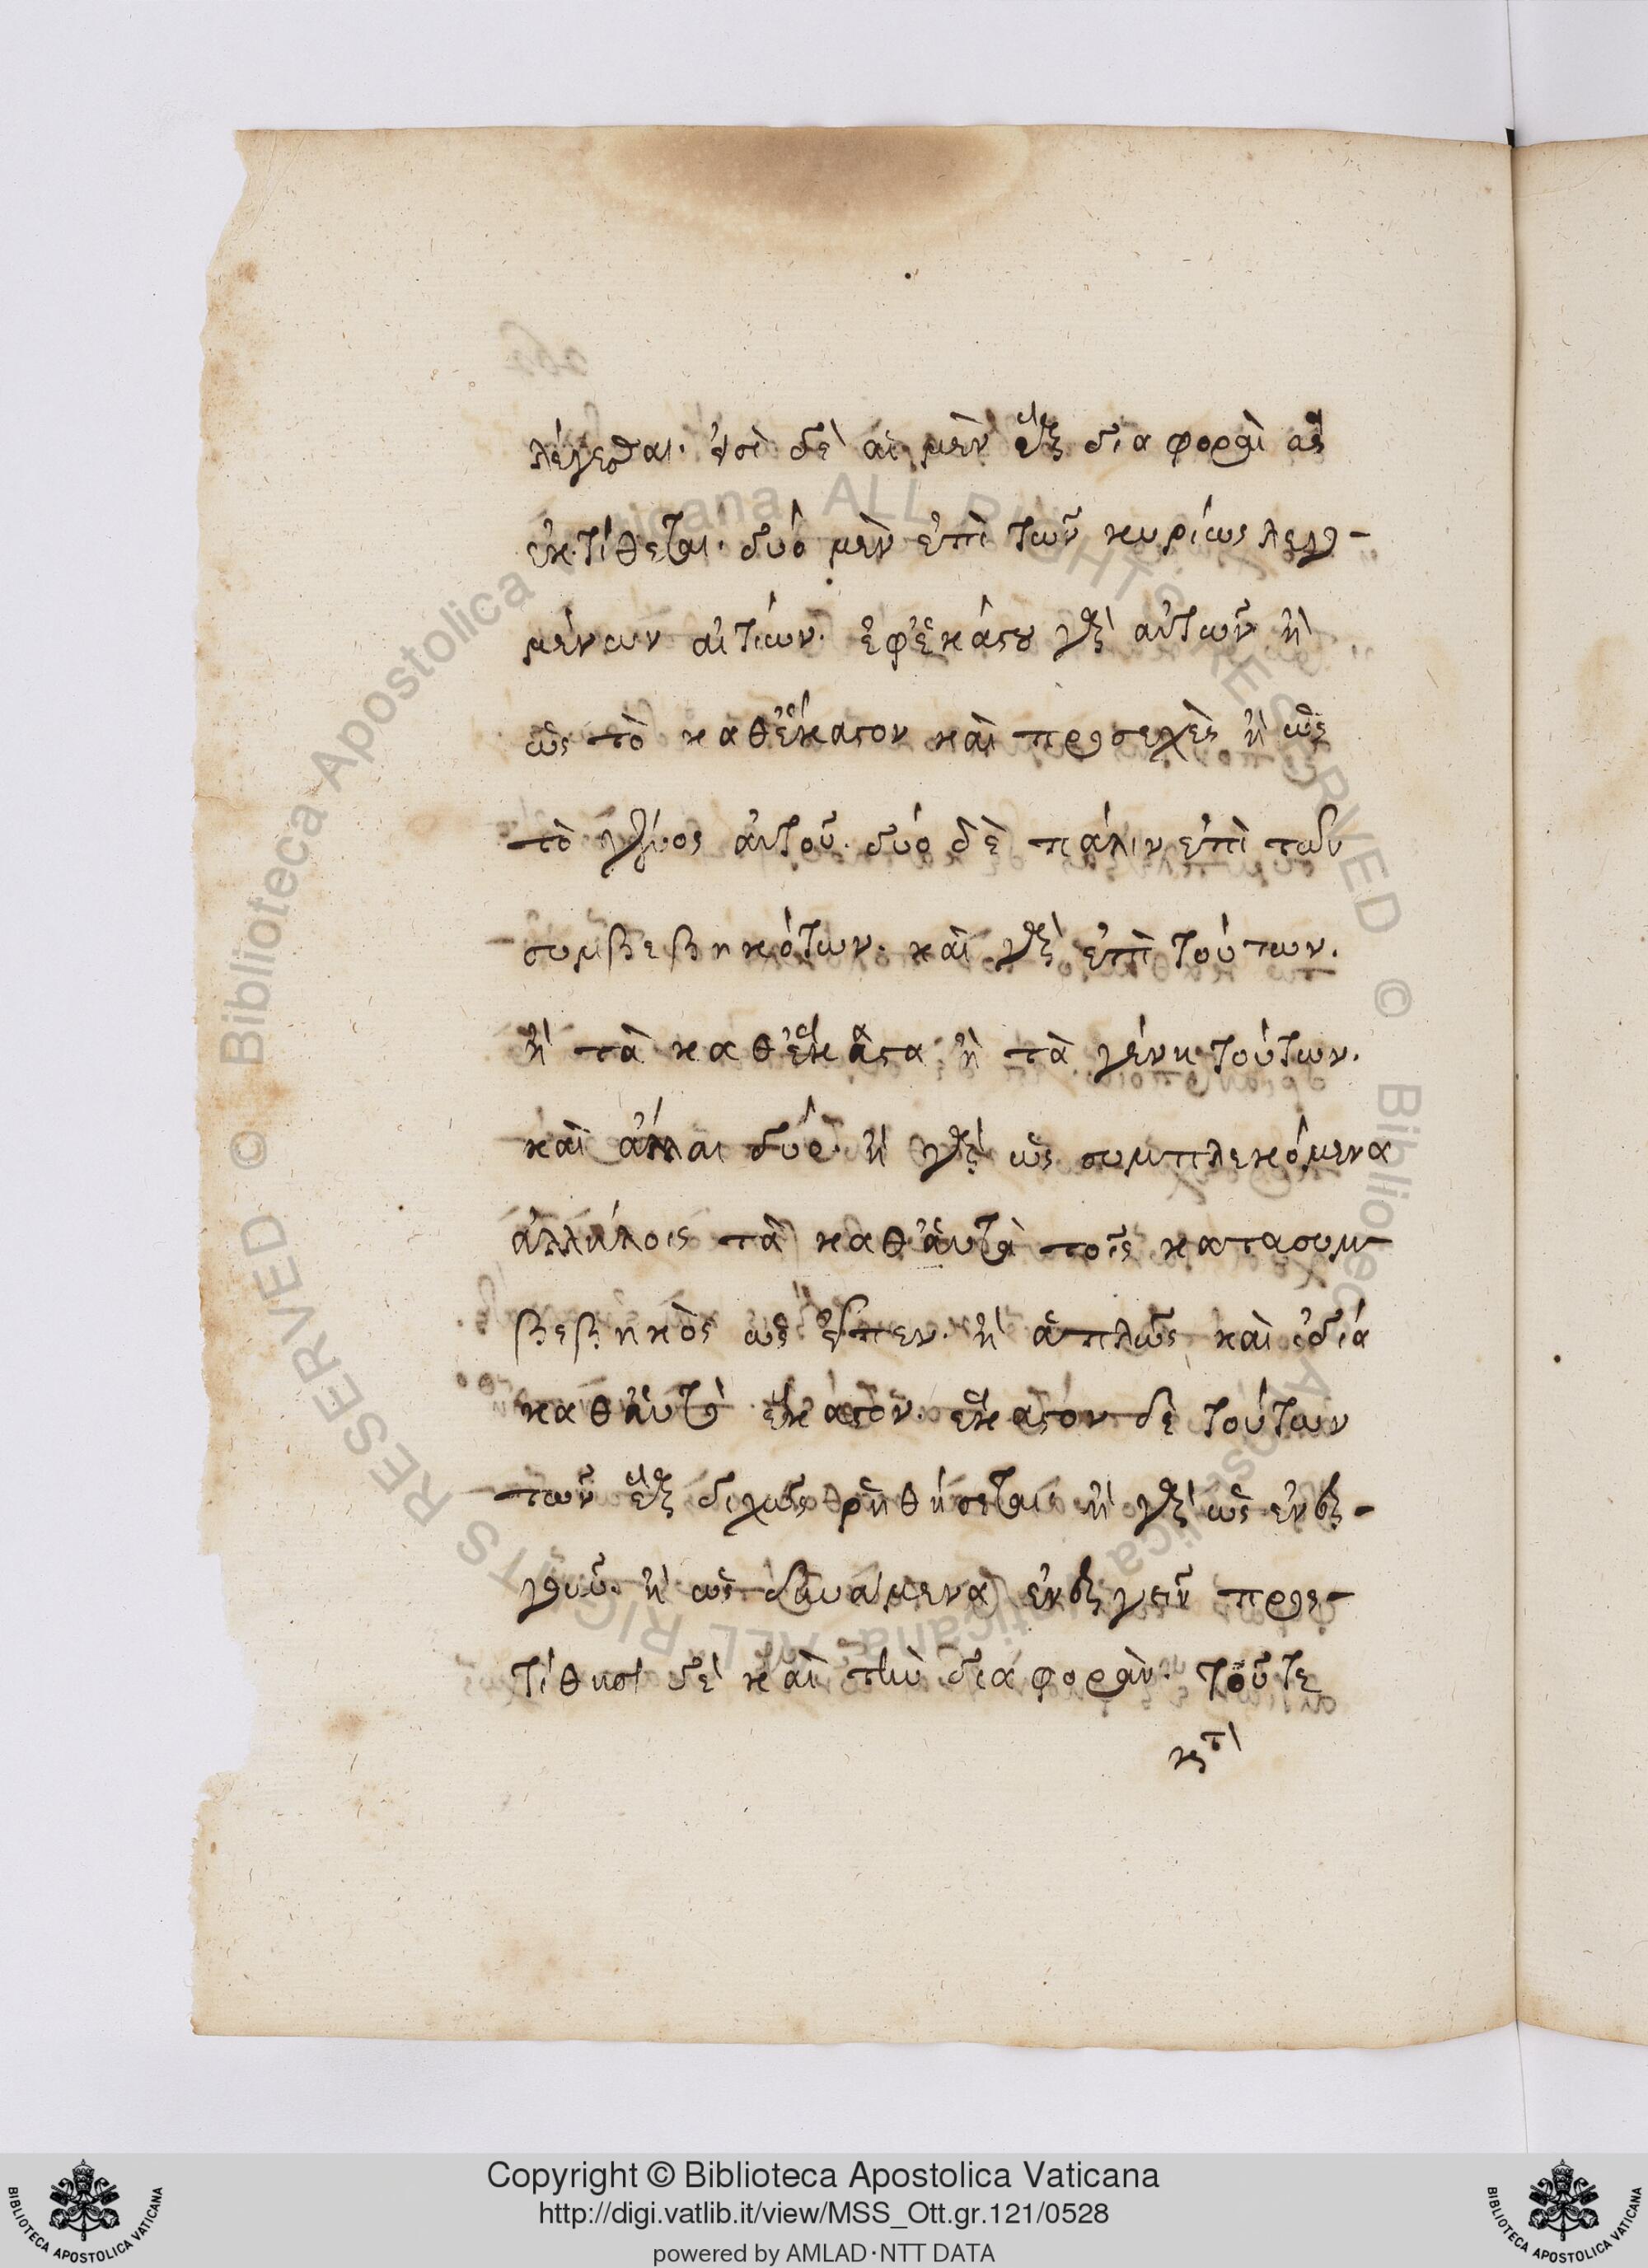 λέγεσθαι. εἰσὶ δὲ αἱ μὲν ἓξ διαφοραὶ ἃς
ἐκτίθεται. δύο μὲν ἐπὶ τῶν κυρίως λεγο-
μένων αἰτίων. ἐφ' ἑκάστου γὰρ αὐτῶν ἢ
ὡς τὸ καθ' ἕκαστον καὶ προσεχὲς ἢ ὡς
τὸ γένος αὐτοῦ. δύο δὲ πάλιν ἐπὶ τῶν
συμβεβηκότων. καὶ γὰρ ἐπὶ τούτων.
ἢ τὰ καθ' ἕκαστα ἢ τὰ γένη τούτων.
καὶ ἄλλαι δύο. ἢ γὰρ ὡς συμπλεκόμενα
ἀλλήλοις τὰ καθ' αὑτὰ τοῖς κατασυμ-
βεβηκὸς ὡς εἶπεν. ἢ ἁπλῶς καὶ ἰδία
καθ' αὑτὸ ἕκαστον. ἕκαστον δὲ τούτων
τῶν ἓξ διχῶς ῥηθήσεται ἢ γὰρ ὡς ἐνερ-
γοῦν. ἢ ὡς δυνάμενα ἐνεργεῖν προσ-
τίθησι δὲ καὶ τὴν διαφορὰν. τοῦ τε
κατ
Copyright © Biblioteca Apostolica Vaticana
http://digi.vatlib.it/view/MSS_Ott.gr.121/0528
powered by AMLAD·NTT DATA
BIBLIOTECA APOSTOLICA VATICANA
BIBLIOTECA APOSTOLICA VATICANA
© Biblioteca Apostolica Vaticana ALL RIGHTS RESERVED © Biblioteca Apostolica Vaticana ALL RIGHTS RESERVED